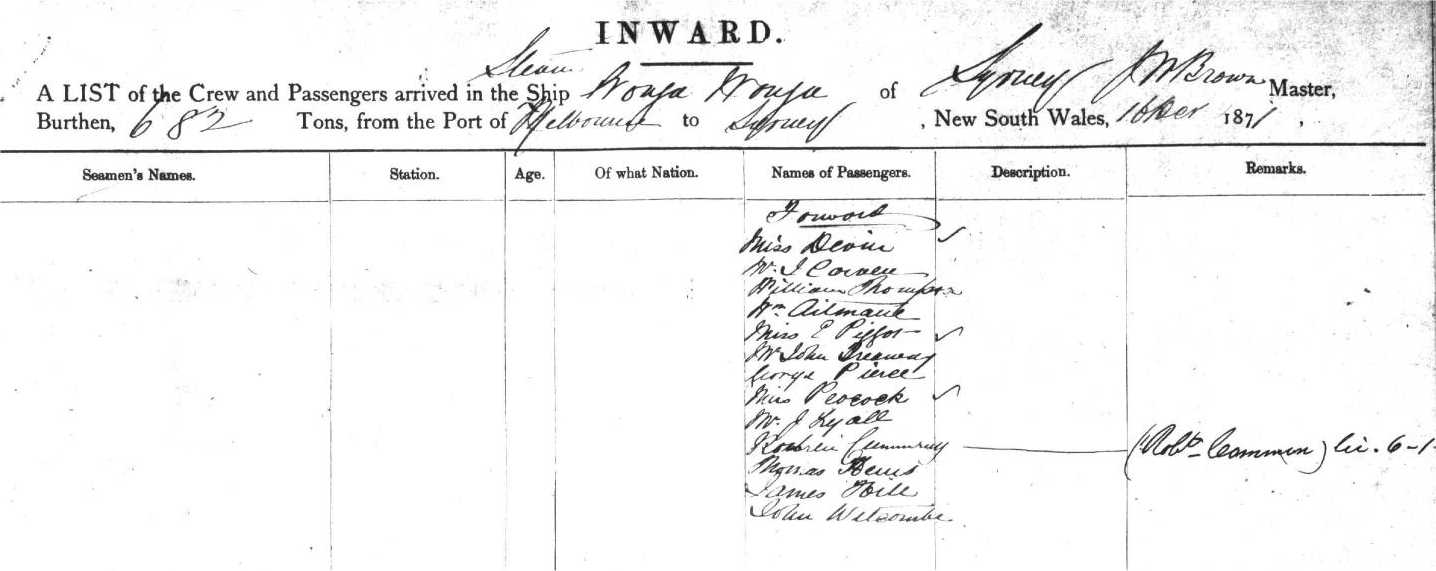 INWARD.
Steam
A LIST of the Crew and Passengers arrived in the Ship Wonga Wonga of Sydney J W Brown Master,
Burthen, 682 Tons, from the Port of Melbourne to Sydney, New South Wales, 1871,
Seamen's Names. Station. Age. Of what Nation. Names of Passengers. Description. Remarks.
Forward
Miss Devin
Mr. J
William Thompson
Wm
Miss E Piggot
Mr John Treaway
George Pierce
Miss Peocock
Mr. J Lyall
(Robt. Cammin) 6-1-
Thomas
James
John Witcombe